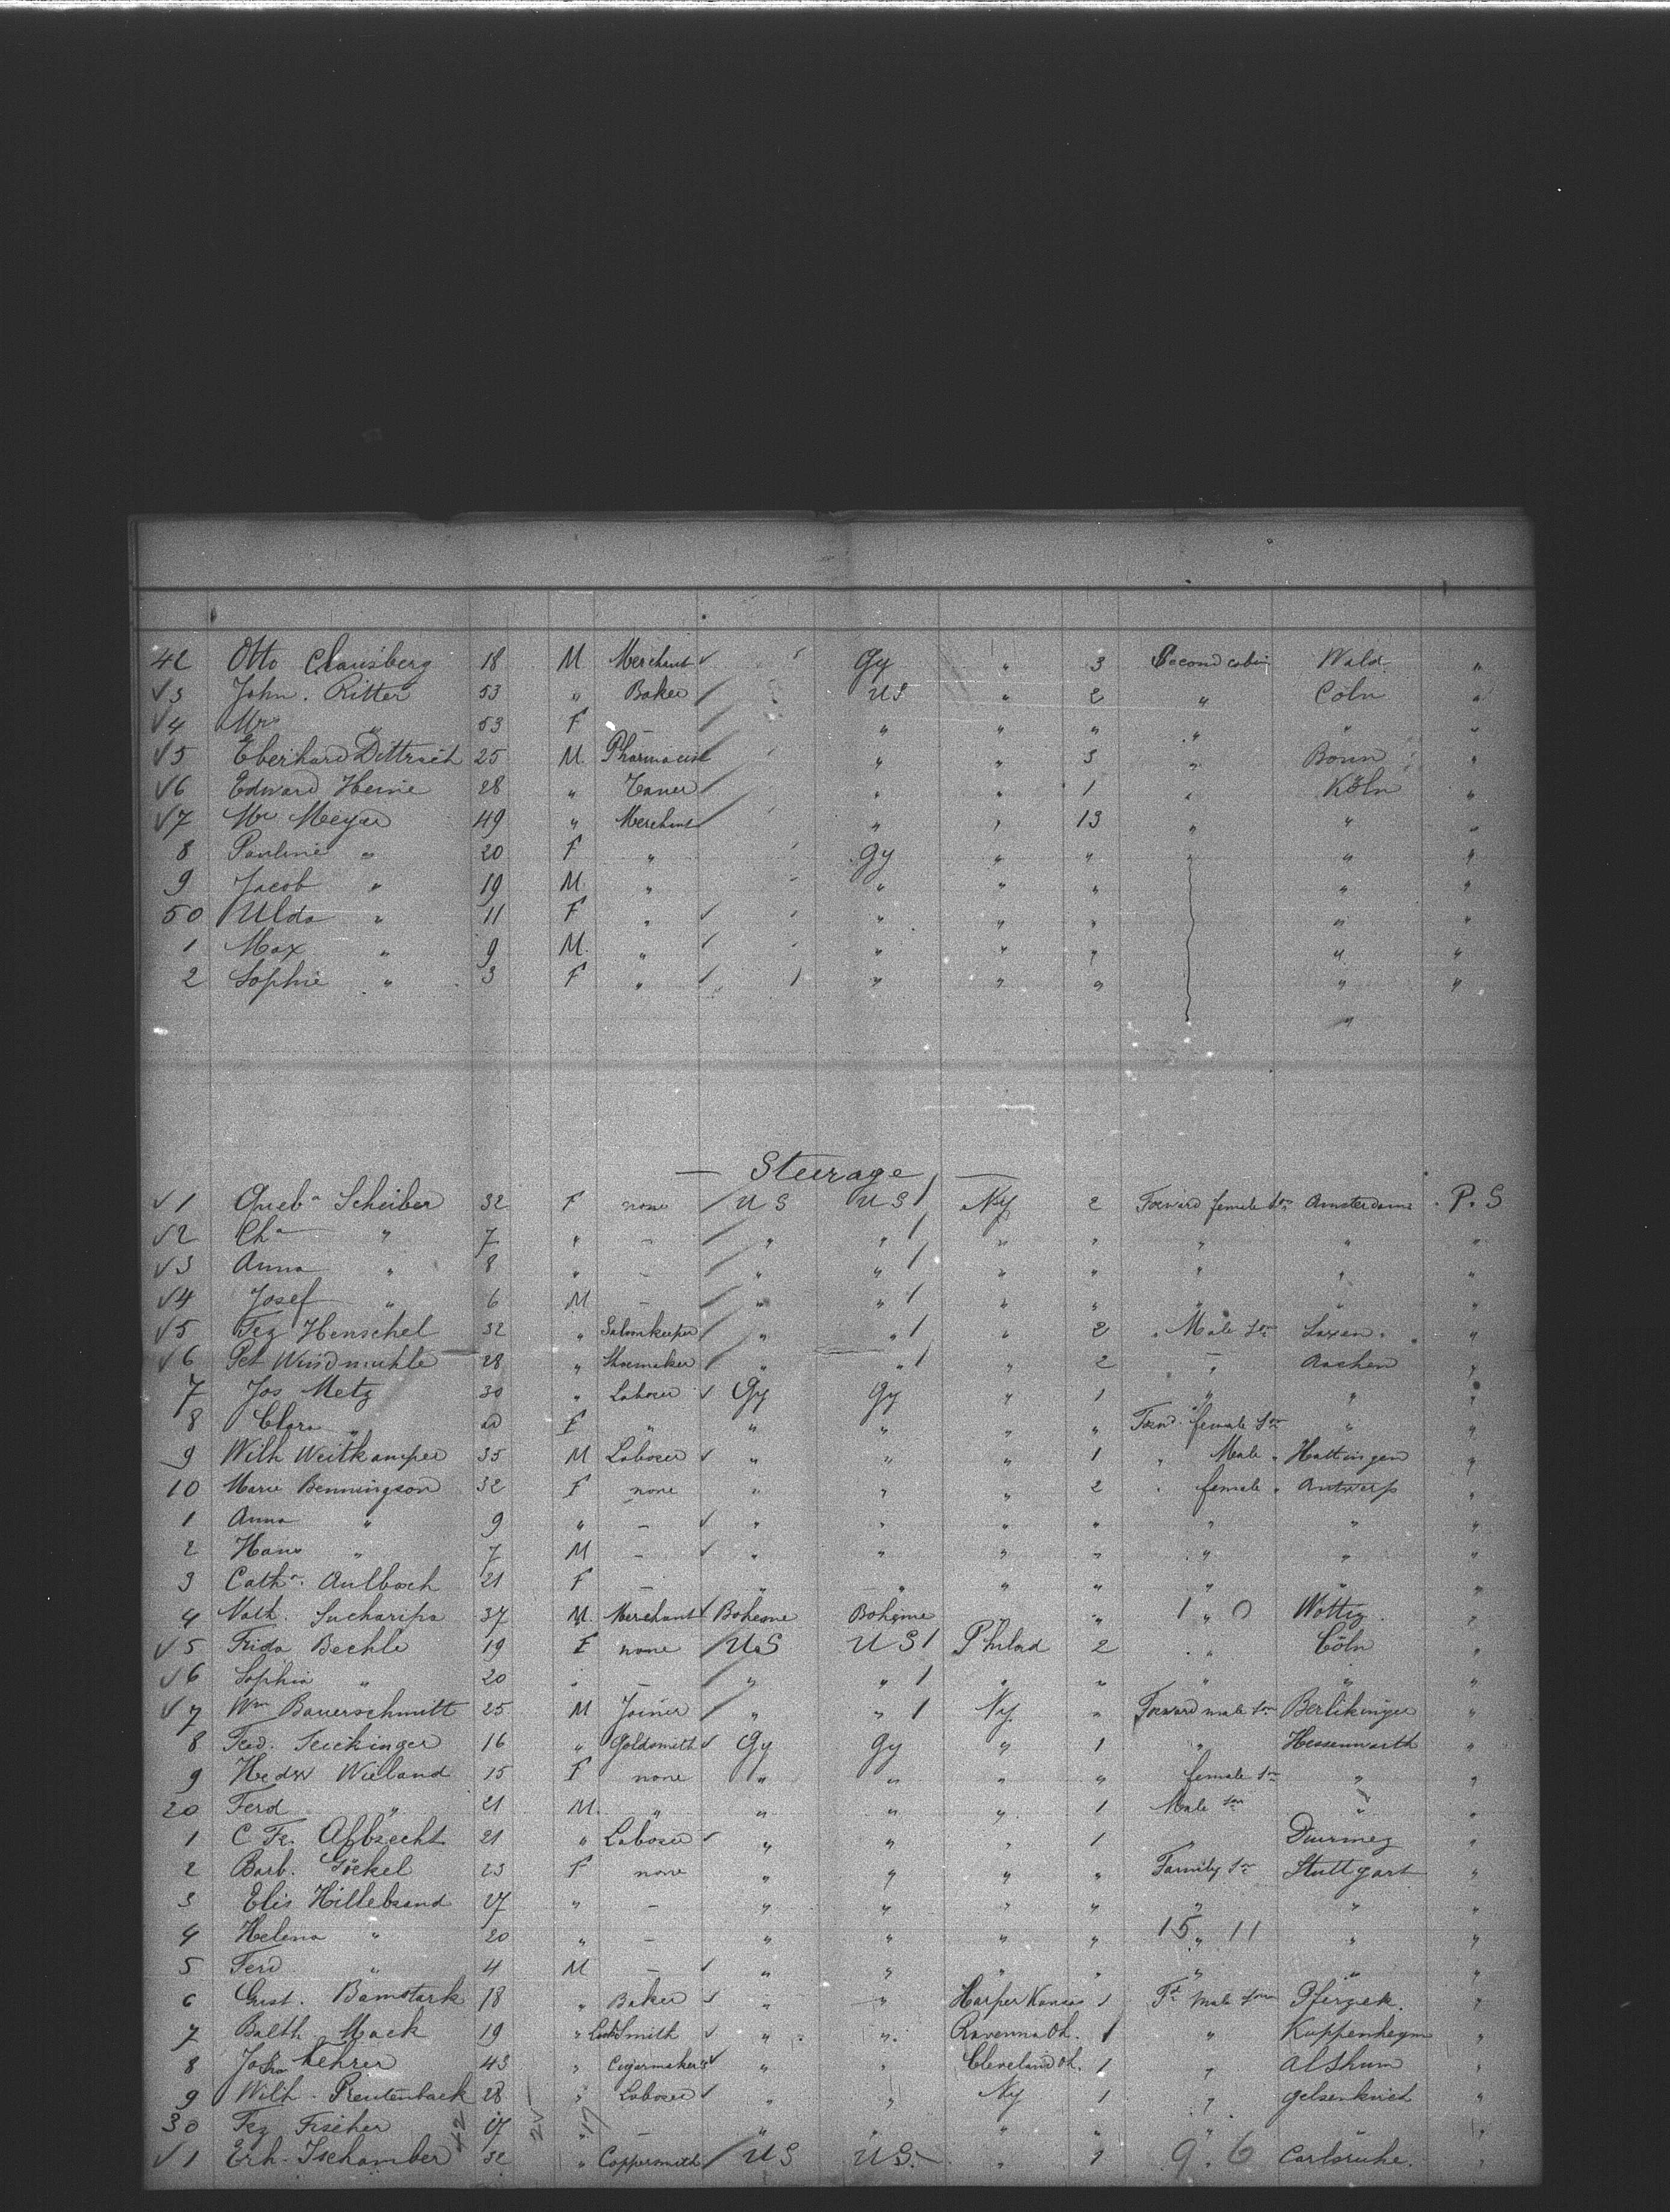 42 Otto Clausberg 18 M Merchant Gy " 3 Second cabin Wald "
√3 John. Ritter 53 " Baker US " 2 " Cöln "
√4 Mrs " 53 F — " " " " " "
√5 Eberhard Dittrich 25 M. Pharmacist " " 3 " Bonn "
√6 Edward Heine 28 " " " 1 " Köln "
√7 Mr Meyer 49 " Merchant " " 13 " " "
8 Pauline " 20 F " Gy " " " "
9 Jacob " 19 M " " " " " "
50 Ulda " 11 F " " " " " "
1 Max " 9 M. " " " " " "
2 Sophie " 3 F " " " " " "
"
— Steerage —
√1 Scheiber 32 F none US US 1 Ny 2 Forward female Amsterdam P. S
√2 " 7 " — " " 1 " " " " "
√3 Anna " 8 " — " " 1 " " " " "
√4 Josef " 6 M — " " 1 " " " " "
√5 Henschel 32 " Saloonkeeper " " 1 " 2 " Male "
√6 Pet Windmuhle 28 " Shoemaker " " 1 " 2 " Aachen "
7 Jos Metz 30 " Laborer √ Gy Gy " 1 " " "
8 Clara " F " " " " " Forwd. female " "
9 Wilh Weitkamper 35 M Laborer √ " " " 1 " Male " Hattingen "
10 Marie Benningson 32 F none " " " 2 " female " Antwerp "
1 Anna " 9 " — √ " " " " " " "
2 Hans " 7 M — √ " " " " " " "
3 Cath. Aulbach 21 F — " " " " " " "
4 Nath. Sucharipa 37 M. Merchant √ Boheme Boheme " " 1 " 0 "
√5 Frida Bechle 19 F none US US 1 Philad 2 " Cöln "
√6 Sophia " 20 " — " " 1 " " " " "
√7 Wm Bauerschmitt 25 M Joiner " " 1 Ny. " Forward male Berlikingen "
8 Ferd. 16 " Goldsmith √ Gy Gy " 1 " Hessenwarth "
9 Hedw Wieland 15 F none " " " " female " "
20 Ferd " 21 M. " " " " 1 Male " "
1 C Fr. Albrecht 21 " Laborer √ " " " 1 " "
2 Barb. Göckel 23 F none " " " " Family Stuttgart "
3 Elis Hillebrand 27 " — " " " " " " "
4 Helena " 20 " — " " " " 15 " 11 " "
5 Ferd " 4 M — √ " " " " " " "
6 Gust. Bamstark 18 " Baker √ " " Harper Kansas 1 Fd male "
7 Balth. Mack 19 " LockSmith √ " " Ravenna Oh. 1 " Kuppenheym "
8 Lehrer 43 " Cigarmaker √ " " Cleveland Oh. 1 " "
9 Wilh. Reutenbach 28 " Laborer √ " " Ny 1 " Gelsenkirch "
30 Fischer 17 " — " " " " " " "
√1 Erh. Tschamber 32 " Coppersmith US US. " 1 9. 6 Carlsruhe. "